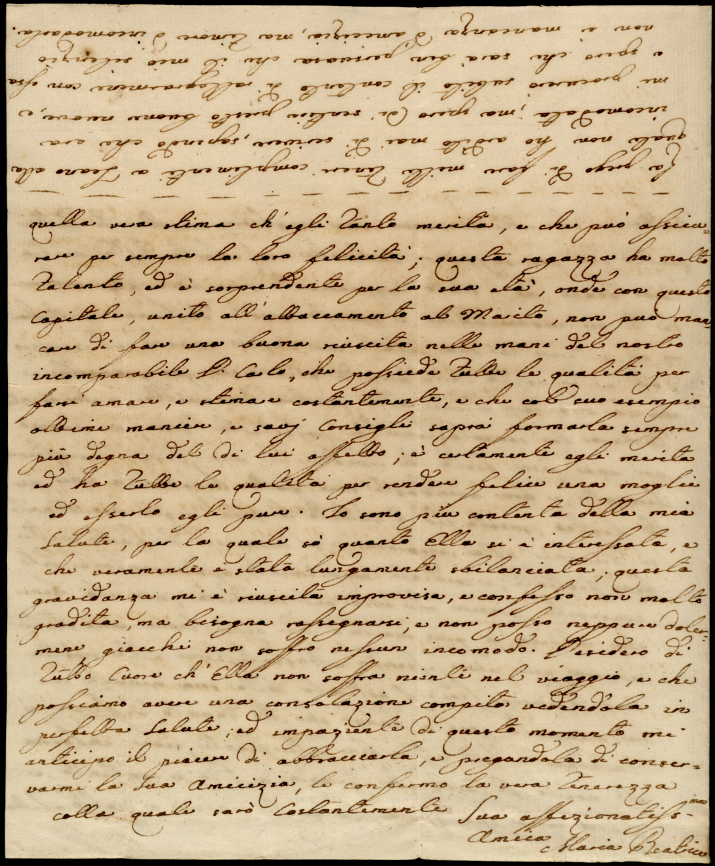 quella vera stima ch' egli tanto merita, e che può assicu=
rare per sempre la loro felicità; questa ragazza ha molto
talento, ed è sorprendente per la sua età, onde con questo
Capitale, unito all' attaccamento al Marito, non può man=
care di fare una buona riuscita nelle mani del nostro
incomparabile Carlo, che possiede tutte le qualità per
farsi amare, e stimare costantemente, e che col suo esempio
ottime maniere, e savj Consigli saprà formarla sempre
più degna del di lui affetto; e certamente egli merita
ed ha tutte le qualità per rendere felice una moglie
ed esserlo egli pure. Io sono più contenta della mia
Salute, per la quale sò quanto Ella si è interessata, e
che veramente è stata lungamente sbilanciata; questa
gravidanza mi è riuscita improvisa, e confesso non molto
gradita, ma bisogna rassegnarsi, e non posso neppure doler=
mene giacchè non soffro nessun incomodo. Desidero di
tutto Cuore ch' Ella non soffra niente nel viaggio, e che
possiamo avere una consolazione compita vedendola in
perfetta Salute; ed impaziente di questo momento mi
anticipo il piacere di abbracciarla, e pregandola di conser=
varmi la sua Amicizia, le confermo la vera tenerezza
colla quale sarò Costantemente Sua affezionatiss=ma
Amica Maria Beatrice
La prego di fare mille teneri complimenti a alla
quale non ho ardito mai di scrivere, sapendo che era
incomodata; ma spero di sentire presto buone nuove, e
mi procurerò subito il contento di rallegrarmene con essa
e spero che sarà ben persuasa che il mio silenzio
non è mancanza d'amicizia, ma timore d'incomodarla.